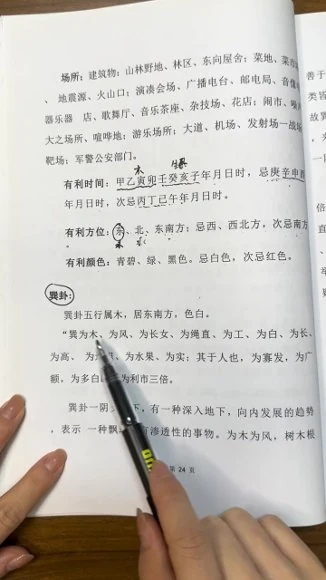 场所：建筑物；山林野地、林区、东向屋舍；菜地、菜市
、地震源、火山口；演凑会场、广播电台、邮电局、音像
器乐器 店、歌舞厅、音乐茶座、杂技场、花店；闹市、
大之场所、喧哗地；游乐场所；大道、机场、发射场一战场
靶场；军警公安部门。
木
有利时间：甲乙寅卯壬癸亥子年月日时，忌庚辛申酉
年月日时，次忌丙丁巳午年月日时。
有利方位：东、北、东南方；忌西、西北方，次忌南方
木 水
有利颜色：青碧、绿、黑色。忌白色，次忌红色。
巽卦：
巽卦五行属木，居东南方，色白。
“巽为木、为风、为长女、为绳直、为工、为白、为长、
为高、为 、为水果、为实；其于人也，为寡发，为广
额，为多白 为利市三倍。
巽卦一阴 下，有一种深入地下，向内发展的趋势
，表示 一种飘 有渗透性的事物。为木为风，树木根
第 24 页
善于
类旨
故巽